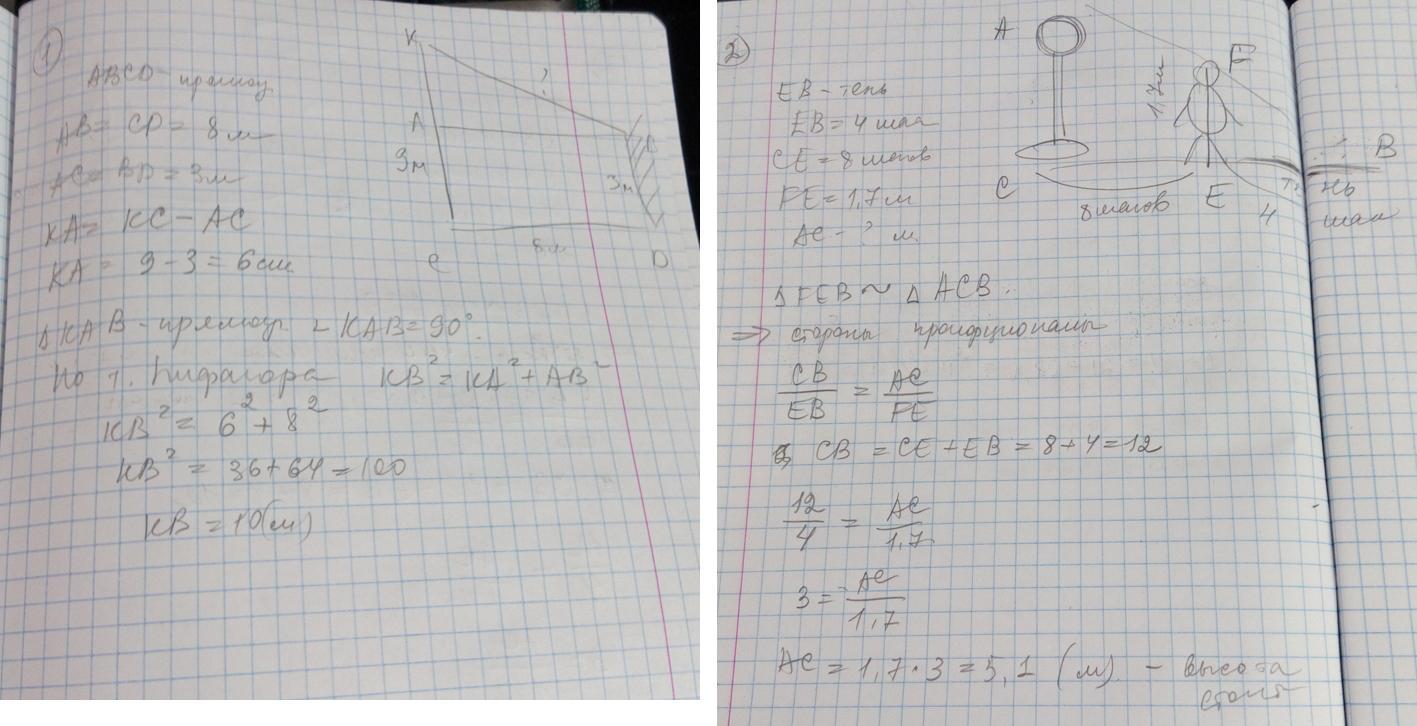 1
ABCD - прямоуг
AB = CD = 8 м
AC = BD = 3 м
KA = KC - AC
KA = 9 - 3 = 6 см
Δ KAB - прямоуг. ∟KAB = 90°.
По т. Пифагора KB² = KA² + AB²
KB² = 6² + 8²
KB² = 36 + 64 = 100
KB = 10 (м)
K
?
A
9м
3м
8 м
C
D
2
EB - тень
EB = 4 шага
CE = 8 шагов
FE = 1,7 м
AC - ? м.
A
F
1,7м
B
C
8 шагов
E
те нь
4 шага
Δ FEB ~ Δ ACB.
⇒ стороны пропорциональны
CB/EB = AC/FE
CB = CE + EB = 8 + 4 = 12
12/4 = AC/1,7
3 = AC/1,7
AC = 1,7 · 3 = 5,1 (м) - высота
столб